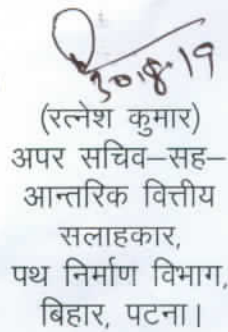 30.8.19
(रत्नेश कुमार)
अपर सचिव–सह–
आन्तरिक वित्तीय
सलाहकार,
पथ निर्माण विभाग,
बिहार, पटना।